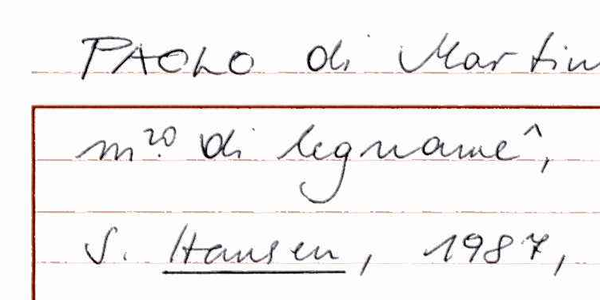 PAOLO di Martin
m.ʳᵒ di legname^,
S. Hansen, 1987,